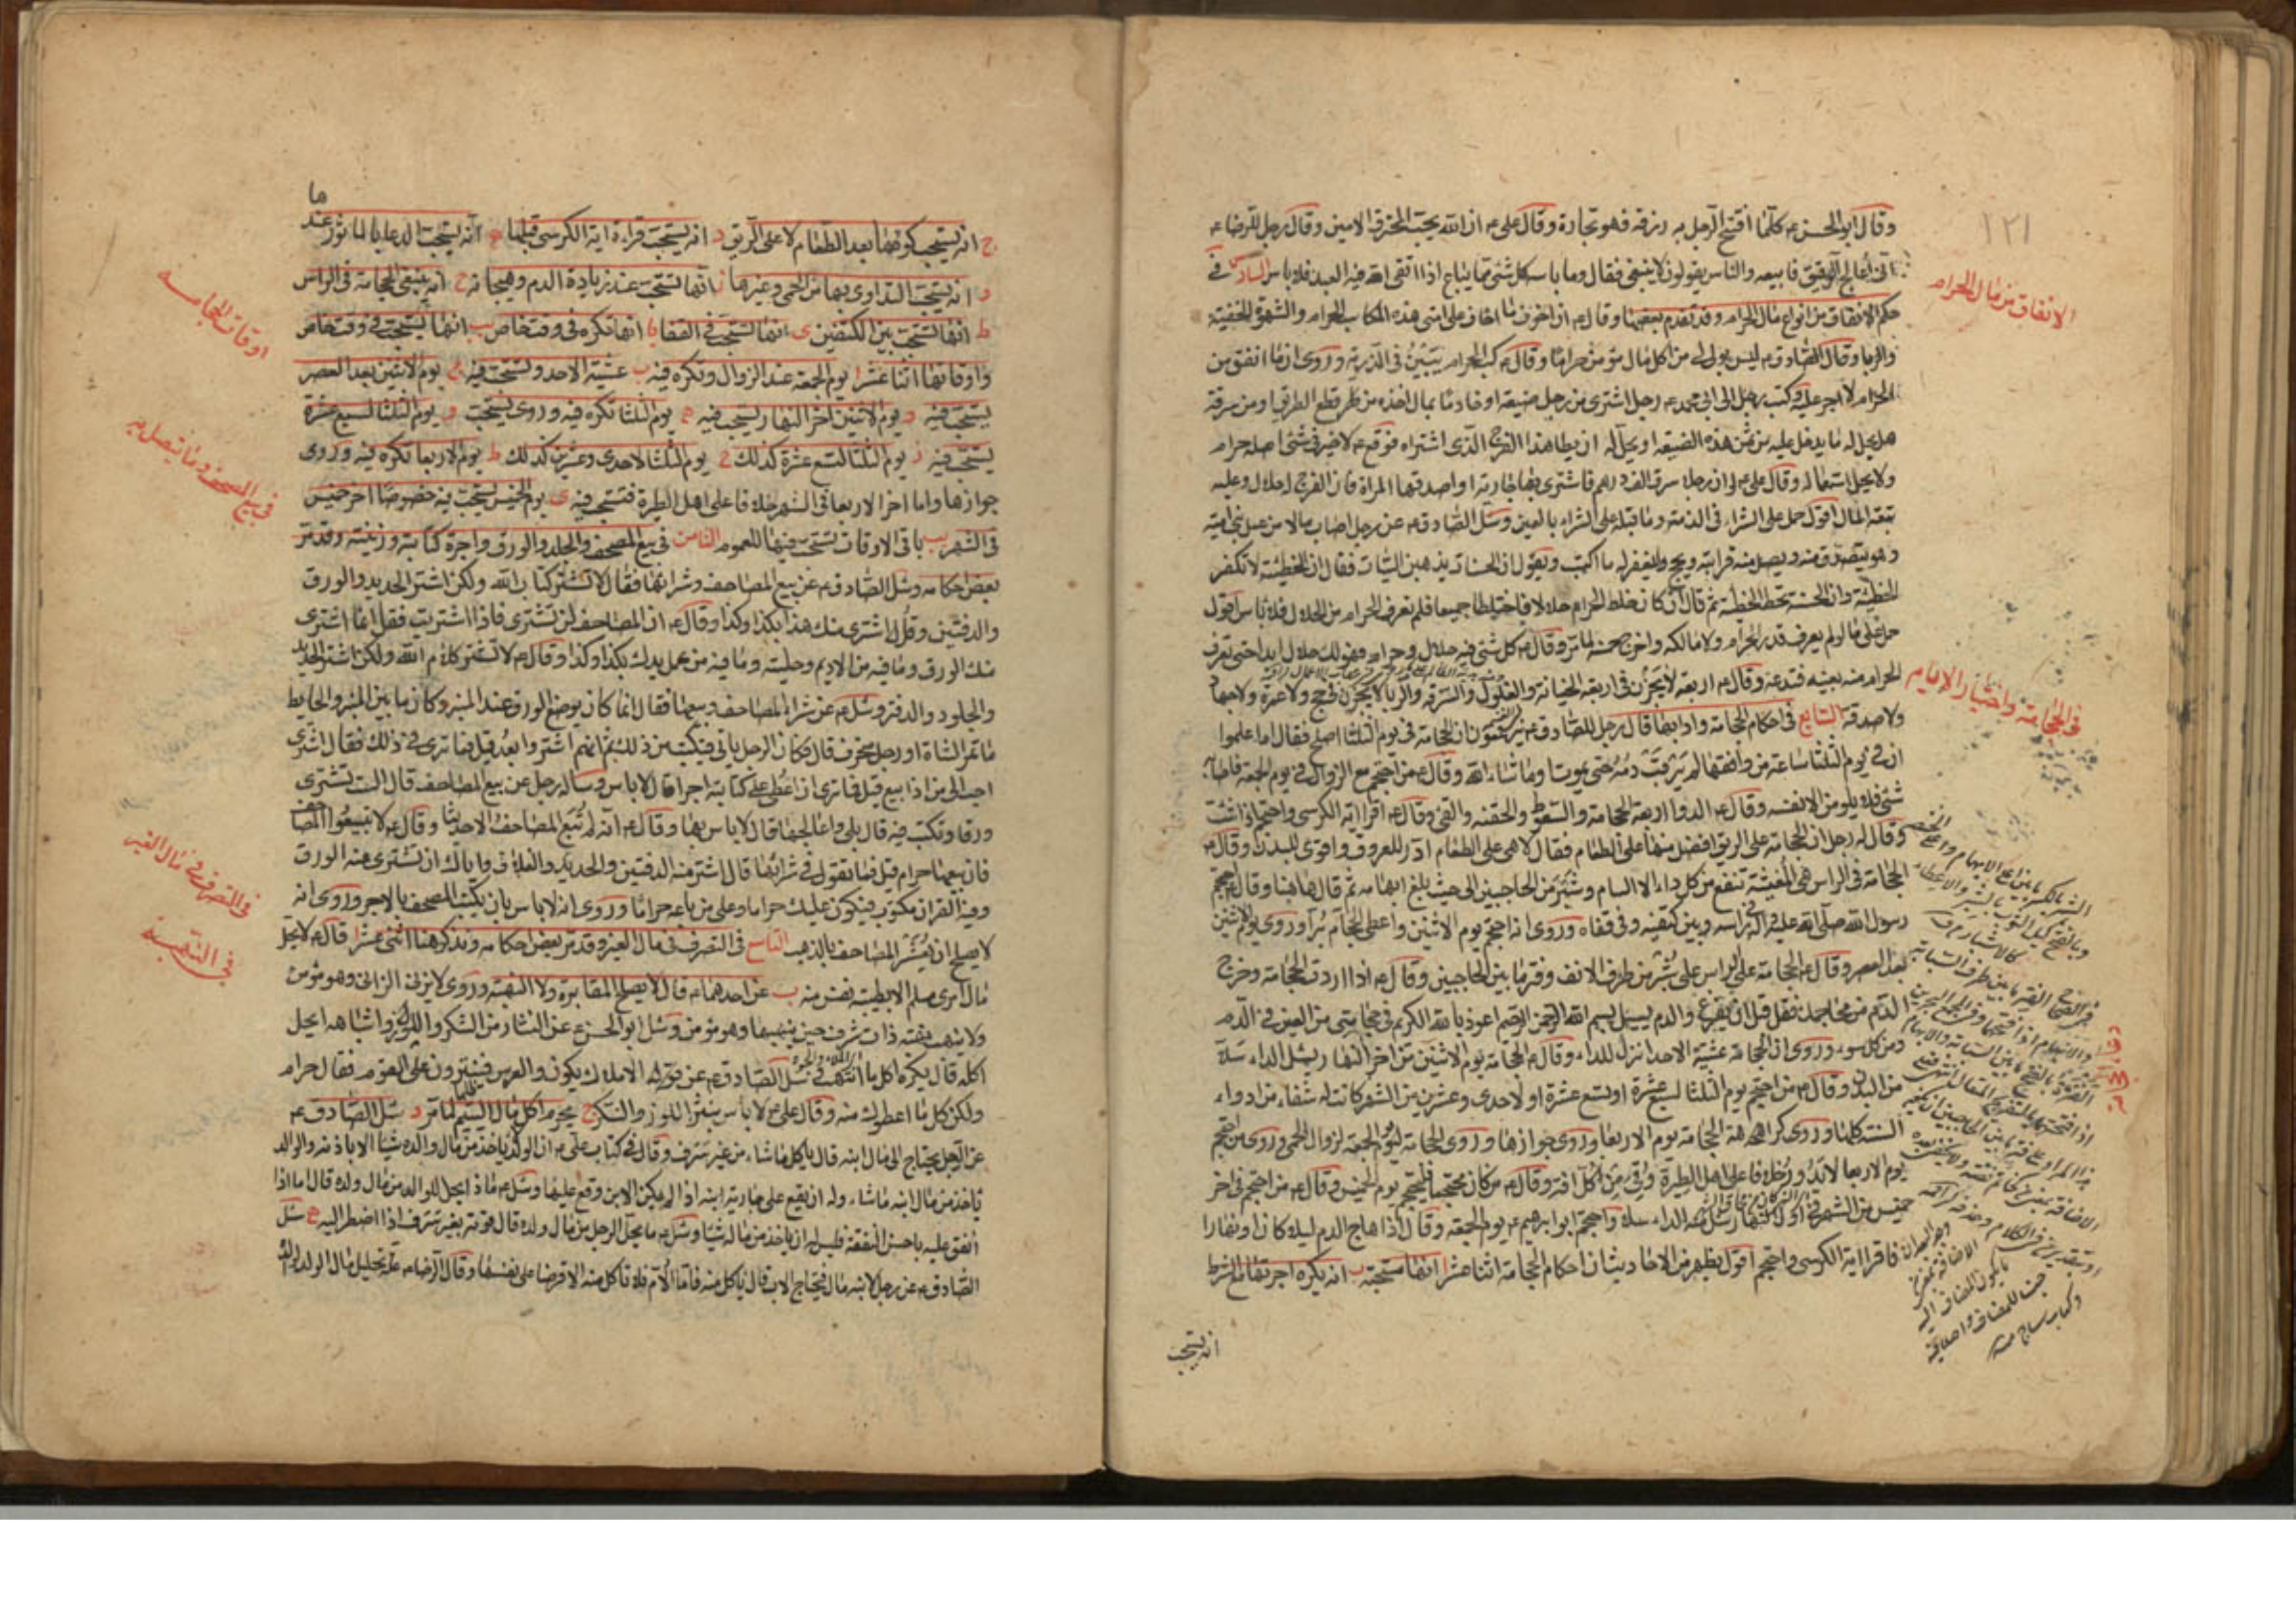 ١٢١
وقال ابو الحسن ع كلما افتتح الرجل به رزقه فهو تجارة وقال على ع ان الله يحب المحترف الامين وقال رجل للرضا ع
انى اعالج الرقيق فابيعه والناس يقولون لا ينبغى فقال وما باسه كل شئ مما يباع اذا اتقى الله فيه العبد فلا باس السادس فى
حكم الانفاق من انواع مال الحرام وقد تقدم بعضها وقال ع ان اخوف ما اخاف على امتى هذه المكاسب الحرام والشهوة الخفية
والربا وقال الصادق ع ليس بولى لى من اكل مال مؤمن حراما وقال ع كسب الحرام يتبين فى الذرية وروى ان ما انفق من
الحرام لا اجر عليه وكتب رجل الى ابى محمد ع رجل اشترى من رجل ضيعة او خادما بمال اخذه من قطع الطريق او من سرقة
هل يحل له ما يدخل عليه من ثمن هذه الضيعة او يحل له ان يطا هذا الفرج الذى اشتراه فوقع ع لا خير فى شئ اصله حرام
ولا يحل استعماله وقال على ع لو ان رجلا سرق الف درهم فاشترى بها جارية او اصدقها المراة فان الفرج له حلال وعليه
تبعة المال اقول حمل على الشراء فى الذمة وما قبله على الشراء بالعين وسئل الصادق ع عن رجل اصاب مالا من عمل بنى امية
وهو يتصدق منه ويصل منه قرابته ويحج ليغفر له ما اكتسب ويقول ان الحسنات يذهبن السيئات فقال ان الخطيئة لا تكفر
الخطيئة وان الحسنة تحط الخطيئة ثم قال ان كان خلط الحرام حلالا فاختلطا جميعا فلم يعرف الحرام من الحلال فلا باس اقول
حمل على ما لو لم يعرف قدر الحرام ولا مالكه واخرج خمسه لما مر وقال ع كل شئ فيه حلال وحرام فهو لك حلال ابدا حتى تعرف
الحرام منه بعينه فتدعه وقال ع اربعة لا يجزن فى اربعة الخيانة والغلول والسرقة والربا لا يجزن فى حج ولا عمرة ولا جهاد
ولا صدقة السابع فى احكام الحجامة وادابها قال رجل للصادق ع يزعمون ان الحجامة فى يوم الثلثا اصلح فقال اما علموا
ان فى يوم الثلثا ساعة من وافقها لم يرقا دمه حتى يموت او ما شاء الله وقال ع من احتجم مع الزوال فى يوم الجمعة فاصابه
شئ فلا يلومن الا نفسه وقال ع الدوا اربعة الحجامة والسعوط والحقنة والقئ وقال ع اقرا اية الكرسى واحتجم اذا شئت
وقال له رجل ان الحجامة على الريق افضل منها على الطعام فقال لا هى على الطعام ادر للعروق واقوى للبدن وقال ع
الحجامة فى الراس هى المغيثة تنفع من كل داء الا السام وشبر من الحاجبين الى حيث بلغ ابهامه ثم قال هاهنا وقال ع احتجم
رسول الله صلى الله عليه واله فى راسه وبين كتفيه وفى قفاه وروى انه احتجم يوم الاثنين واعطى الحجام برا وروى يوم الاثنين
بعد العصر وقال ع الحجامة على الراس على شبر من طرف الانف وفتر ما بين الحاجبين وقال ع اذا اردت الحجامة وخرج
الدم من محاجمك فقل قبل ان يفرغ والدم يسيل بسم الله الرحمن الرحيم اعوذ بالله الكريم فى حجامتى من العين فى الدم
ومن كل سوء وروى ان الحجامة عشية الاحد انزل للداء وقال ع الحجامة يوم الاثنين من اخر النهار يسل الداء سلا
من البدن وقال ع من احتجم يوم الثلثا لسبع عشرة او تسع عشرة او لاحدى وعشرين من الشهر كانت له شفاء من ادواء
السنة كلها وروى كراهة الحجامة يوم الاربعا وروى جوازها وروى الحجامة ليوم الجمعة لزوال الحمى وروى من احتجم
يوم الاربعا لا يدور خلافا على اهل الطيرة وقى من كل افة وقال ع من كان محتجما فليحتجم يوم الخميس وقال ع من احتجم فى اخر
خميس من الشهر فى اول النهار سل منه الداء سلا واحتجم ابو ابرهيم ع يوم الجمعة وقال اذا هاج الدم ليلا كان او نهارا
فاقرا اية الكرسى واحتجم اقول يظهر من الاحاديث ان احكام الحجامة اثنا عشر ا انها مستحبة ب انه يكره اجرتها مع الشرط
انه يستحب
الانفاق من مال الحرام
فى الحجامة واختيار الايام
ج انه يستحب كونها بعد الطعام لا على الريق د انه يستحب قراءة اية الكرسى قبلها ه انه يستحب الدعا بالماثور عندها
و انه يستحب التداوى بها من الحمى وغيرها ز انها تستحب عند زيادة الدم وهيجانه ح انه ينبغى الحجامة فى الراس
ط انها تستحب بين الكتفين ى انها تستحب فى القفا يا انها تكره فى وقت خاص يب انها يستحب فى وقت خاص
واوقاتها اثنا عشر ا يوم الجمعة عند الزوال وتكره فيه ب عشية الاحد وتستحب فيه ج يوم الاثنين بعد العصر
يستحب فيه د يوم الاثنين اخر النهار يستحب فيه ه يوم الثلثا تكره فيه وروى يستحب و يوم الثلثا لسبع عشرة
يستحب فيه ز يوم الثلثا لتسع عشرة كذلك ح يوم الثلثا لاحدى وعشرين كذلك ط يوم الاربعا تكره فيه وروى
جوازها واما اخر الاربعا فى الشهر خلافا على اهل الطيرة فتستحب فيه ى يوم الخميس يستحب فيه خصوصا اخر خميس
فى الشهر يب باقى الاوقات تستحب فيها للعموم الثامن فى بيع المصحف والجلد والورق واجرة كتابته وزينته وقد مر
بعض احكامه وسئل الصادق ع عن بيع المصاحف وشرائها فقال لا تشتر كتاب الله ولكن اشتر الحديد والورق
والدفتين وقل اشترى منك هذا بكذا وكذا وقال ع ان المصاحف لن تشترى فاذا اشتريت فقل انما اشترى
منك الورق وما فيه من الاديم وحليته وما فيه من عمل يدك بكذا وكذا وقال ع لا تشتر كلام الله ولكن اشتر الحديد
والجلود والدفتر وسئل ع عن شراء المصاحف وبيعها فقال انما كان يوضع الورق عند المنبر وكان ما بين المنبر والحايط
ما تمر الشاة او رجل منحرف قال فكان الرجل ياتى فيكتب من ذلك ثم انهم اشتروا بعد قيل فما ترى فى ذلك فقال اشترى
احب الى من ان ابيع قيل فما ترى ان اعطى على كتابته اجرا قال لا باس وساله رجل عن بيع المصاحف قال الست تشترى
ورقا وتكتب فيه قال بلى واعالجها قال لا باس بها وقال ع انه لم تبع المصاحف الا حديثا وقال ع لا تبيعوا المصاحف
فان بيعها حرام قيل فما تقول فى شرائها قال اشتر منه الدفتين والحديد والغلاف واياك ان تشترى منه الورق
وفيه القران مكتوب فيكون عليك حراما وعلى من باعه حراما وروى انه لا باس بان يكتب المصحف بالاجر وروى انه
لا يصلح ان يعشر المصاحف بالذهب التاسع فى التصرف فى مال الغير وقد مر بعض احكامه ونذكر هنا اثنى عشر ا قال ع لا يحل
مال امرئ مسلم الا بطيبة نفس منه ب عن احدهما ع قال لا يصلح المقامرة ولا النهبة وروى لا يزنى الزانى وهو مؤمن
ولا ينهب نهبة ذات شرف حين ينهبها وهو مؤمن وسئل ابو الحسن ع عن النثار من السكر واللوز واشباهه ايحل
اكله قال يكره اكل ما انتهب وسئل الصادق ع عن الاملاك يكون والعرس فينثرون على القوم فقال حرام
ولكن كل ما اعطوك منه وقال على ع لا باس بنثر اللوز والسكر ج يحرم اكل مال اليتيم ظلما لما مر د سئل الصادق ع
عن الرجل يحتاج الى مال ابنه قال ياكل ما شاء من غير سرف وقال فى كتاب على ع ان الولد لا ياخذ من مال والده شيئا الا باذنه والوالد
ياخذ من مال ابنه ما شاء وله ان يقع على جارية ابنه اذا لم يكن الابن وقع عليها وسئل ع ماذا يحل للوالد من مال ولده قال اما اذا
انفق عليه باحسن النفقة فليس له ان ياخذ من ماله شيئا وسئل ع ما يحل للرجل من مال ولده قال قوته بغير سرف اذا اضطر اليه ه سئل
الصادق ع عن رجل لابنه مال فيحتاج الاب قال ياكل منه فاما الام فلا تاكل منه الا قرضا على نفسها وقال الرضا ع علة تحليل مال الولد لوالده
اوقات الحجامه
فى بيع المصحف وما يتصل به
فى التصرف فى مال الغير
فى النهبة